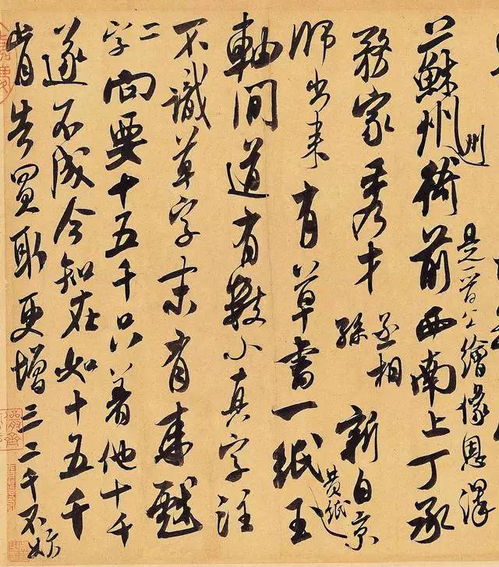 蘇州衙前西南上丁承
州
是晉公繪像恩澤
務家秀才
丞相
孫
新自京
師出來有草書一紙玉
黃紙
軸間道有數小真字注
不識草字末有來戲
二字向要十五千只著他十千
遂不成今知在如十五千
肯告買取更增三二千不妨